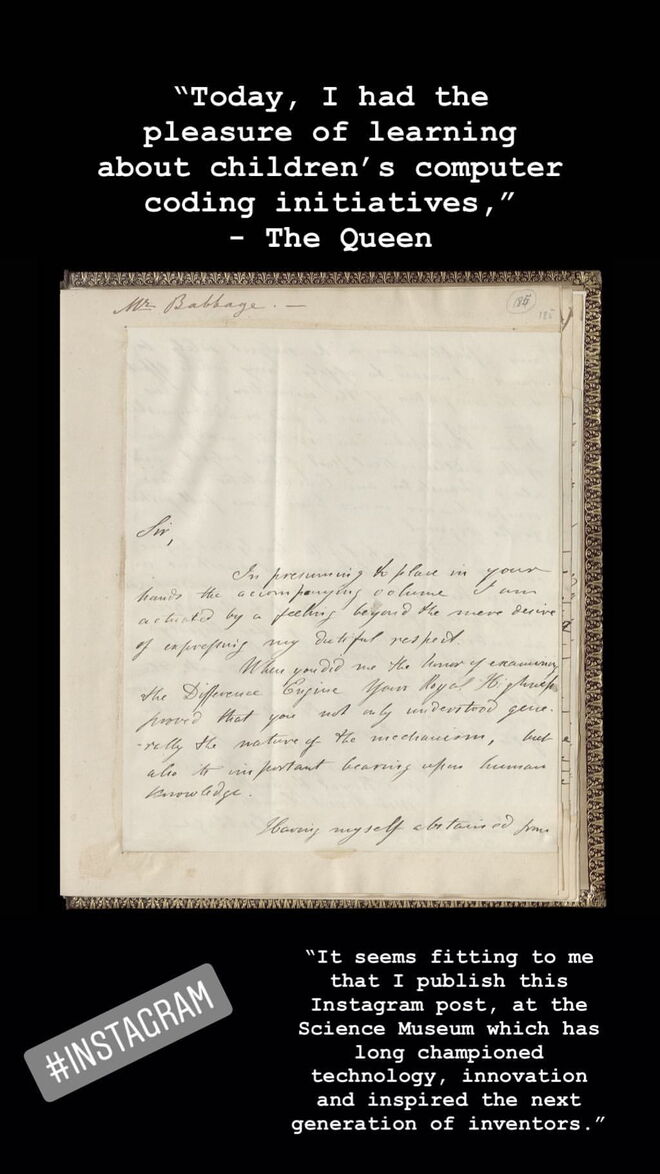 “Today, I had the
pleasure of learning
about children’s computer
coding initiatives,”
- The Queen
Mr Babbage. —
185
185
Sir,
In presuming to place in your
hands the accompanying volume I am
actuated by a feeling beyond the mere desire
of expressing my dutiful respect.
When you did me the honor of examining
the Difference Engine Your Royal Highness
proved that you not only understood gene-
-rally the nature of the mechanism, but
also its important bearing upon human
knowledge.
Having myself abstained from
#INSTAGRAM
“It seems fitting to me
that I publish this
Instagram post, at the
Science Museum which has
long championed
technology, innovation
and inspired the next
generation of inventors.”